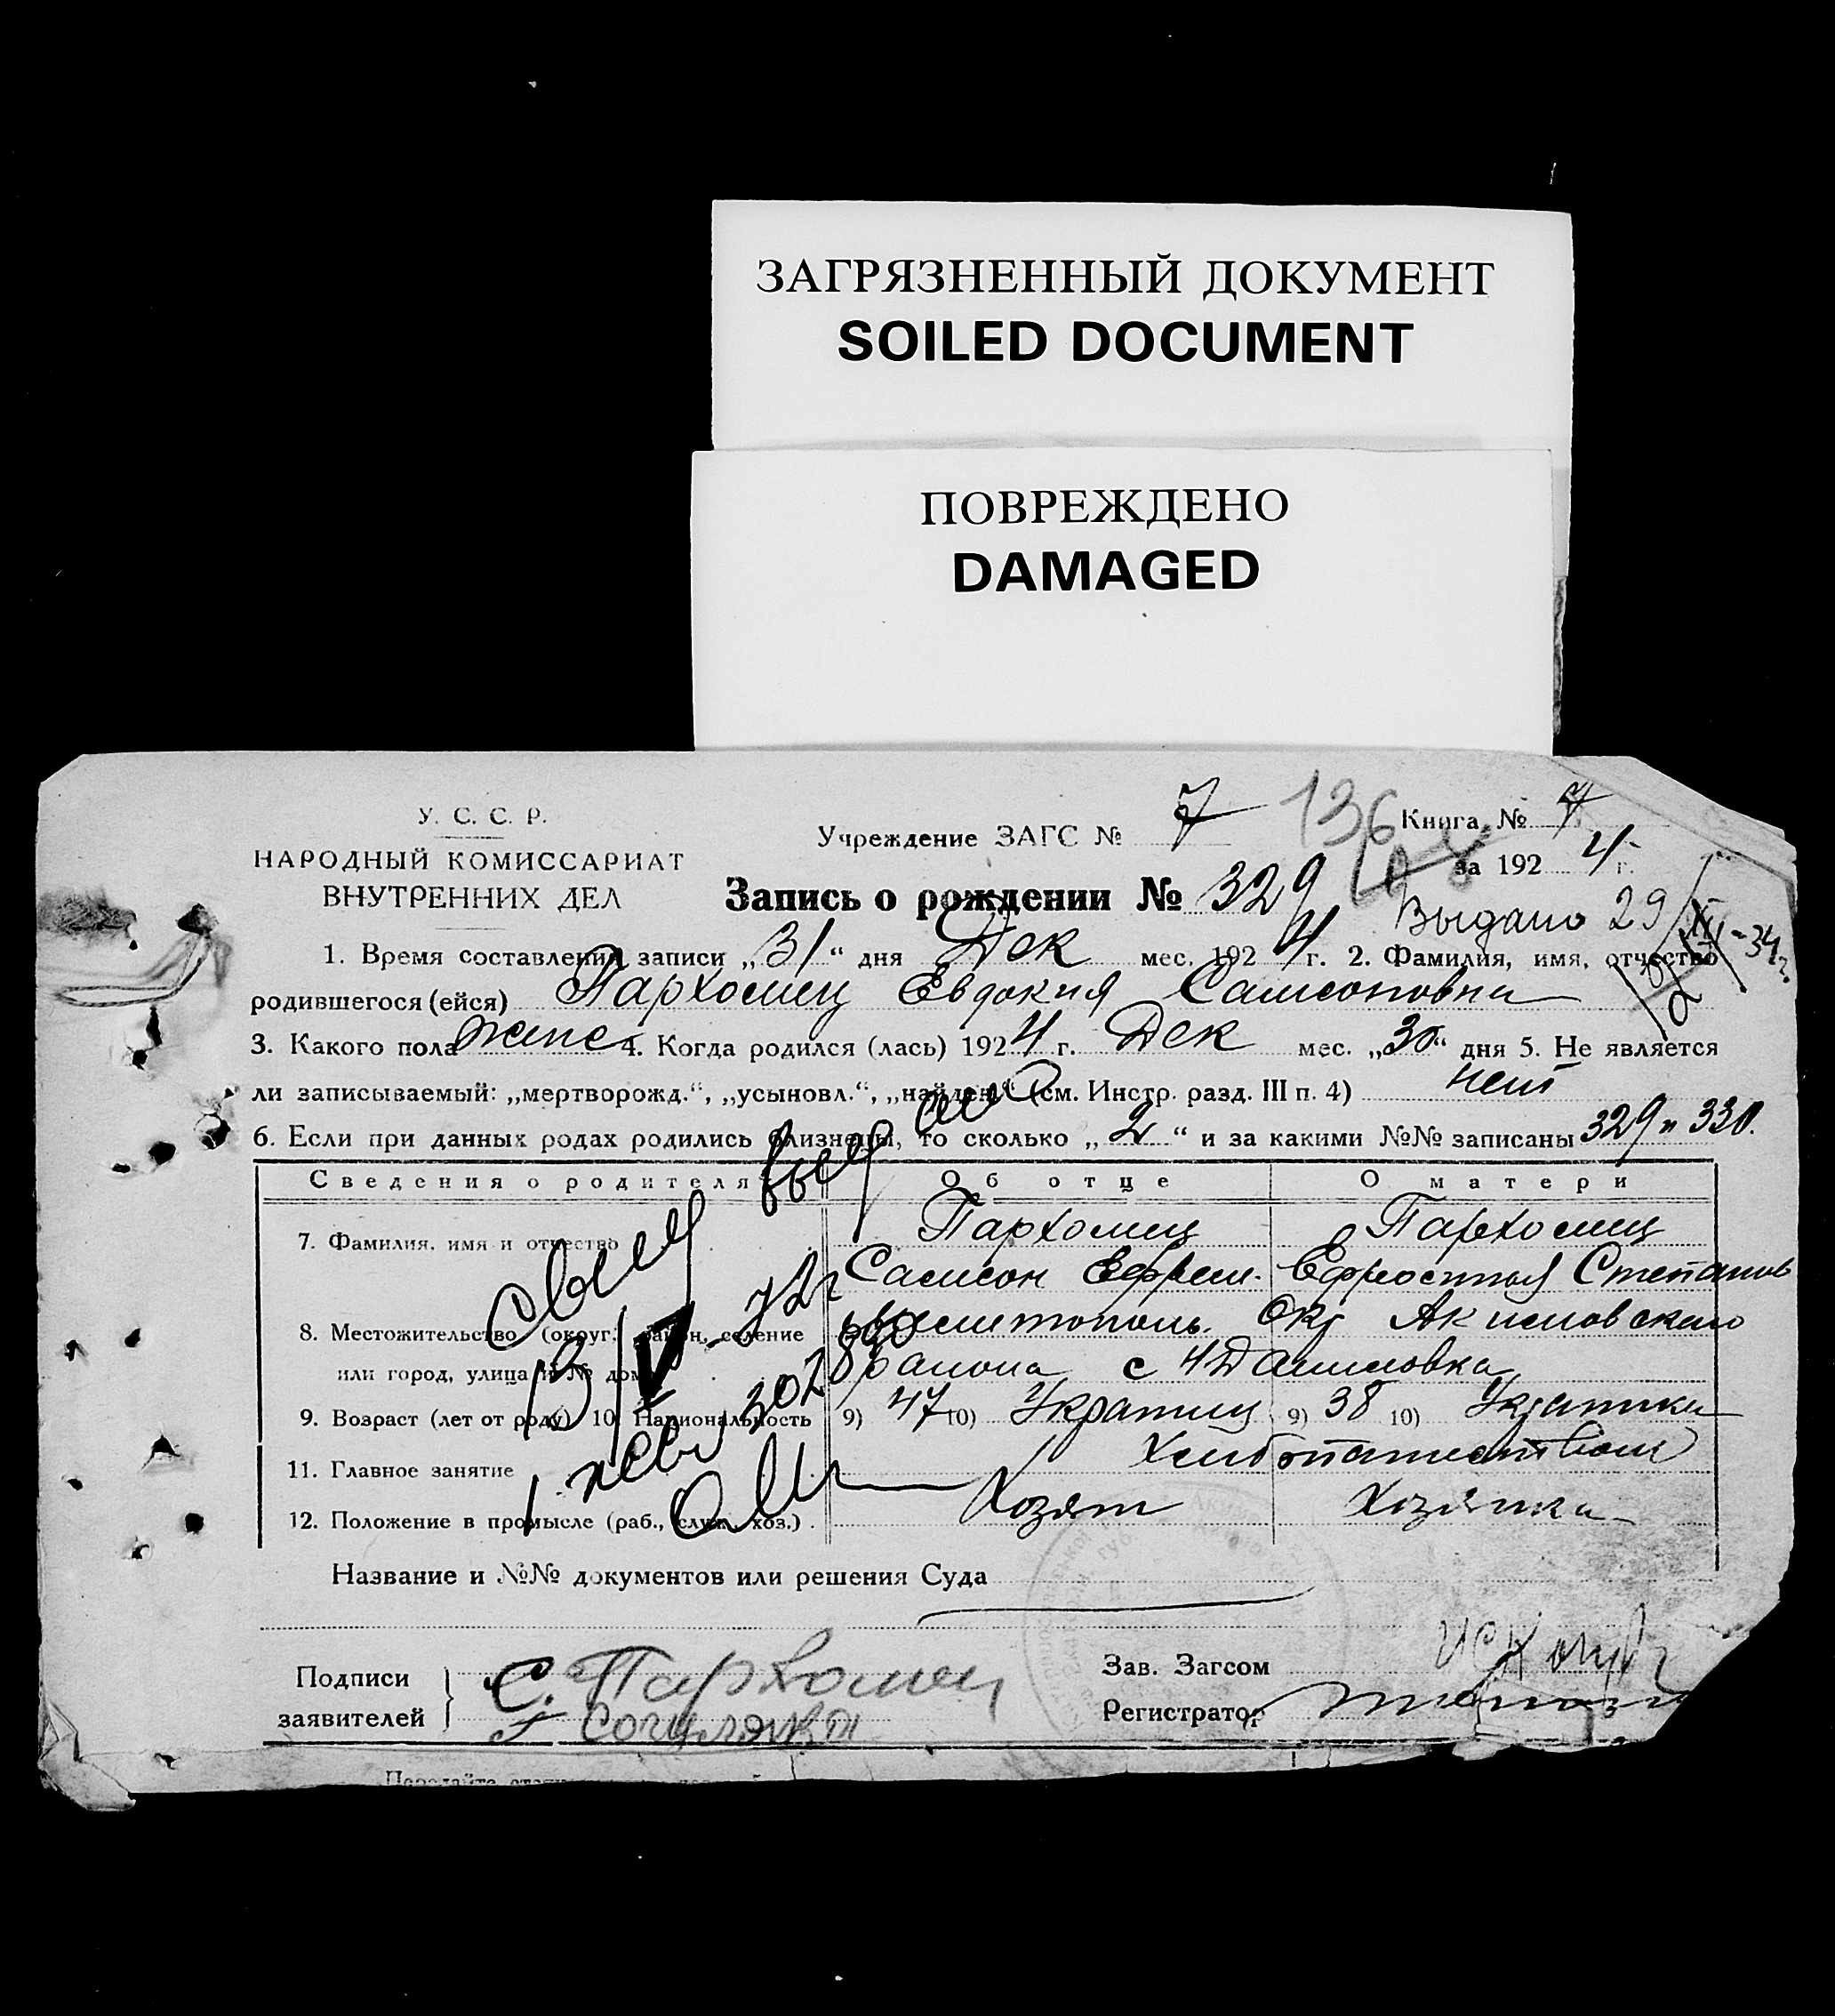 ЗАГРЯЗНЕННЫЙ ДОКУМЕНТ
SOILED DOCUMENT
ПОВРЕЖДЕНО
DAMAGED
У. С. С. Р.
НАРОДНЫЙ КОМИССАРИАТ
ВНУТРЕННИХ ДЕЛ
Учреждение ЗАГС № 7
136
Книга № 7
за 192 4 г.
Запись о рождении № 329
Выдано 29/XII-34г
1. Время составления записи „31“ дня Дек мес. 192 4 г. 2. Фамилия, имя, отчество
родившегося (ейся) Пархомец Евдокия Самсоновна
3. Какого пола женс 4. Когда родился (лась) 192 4 г. Дек мес. „30“ дня 5. Не является
ли записываемый: „мертворожд.“, „усыновл.“, „найден“ (см. Инстр. разд. III п. 4) нет
6. Если при данных родах родились близнецы, то сколько „2“ и за какими №№ записаны 329 и 330.
Сведения о родителях Об отце О матери
7. Фамилия, имя и отчество Пархомец Пархомец
Самсон Ефрем. Ефросиния Степанов
8. Местожительство (округ, район, селение Мелитополь. Окр Акимовского
или город, улица и № дома района с
9. Возраст (лет от роду) 10. Национальность 9) 47 10) Украинец 9) 38 10) Украинка
11. Главное занятие Хлебопашеством
12. Положение в промысле (раб., служ., хоз.) Хозяин Хозяйка
Название и №№ документов или решения Суда
Подписи
заявителей
С. Пархомец
Зав. Загсом
Регистратор